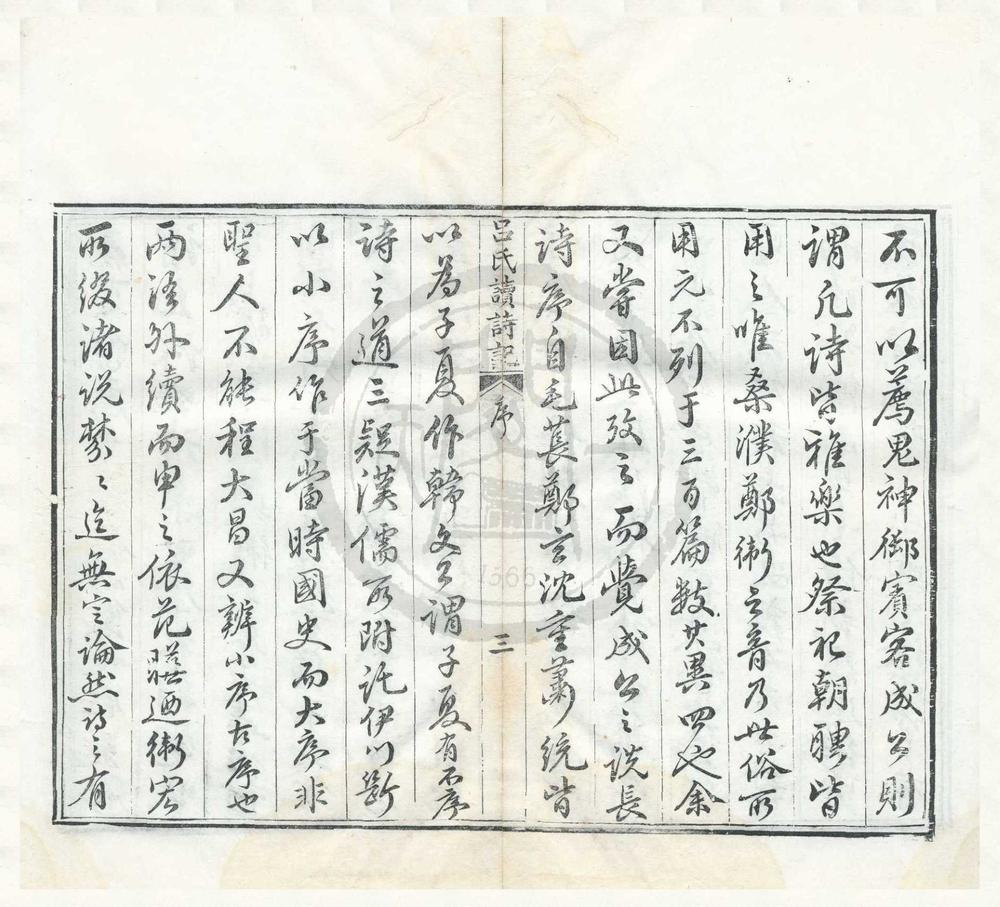 不可以薦鬼神御賓客成公則
謂凡詩皆雅樂也祭祀朝聘皆
用之唯桑濮鄭衛之音乃世俗所
用元不列于三百篇數其異四也余
又嘗因此攷之而覺成公之說長
詩序自毛萇鄭玄沈重蕭統皆
呂氏讀詩記
序
三
以為子夏作韓文公謂子夏有不序
詩之道三疑漢儒所附託伊川斷
以小序作于當時國史而大序非
聖人不能程大昌又辨小序古序也
兩語外續而申之依范曄迺衛宏
所綴諸說棼棼迄無定論然詩之有